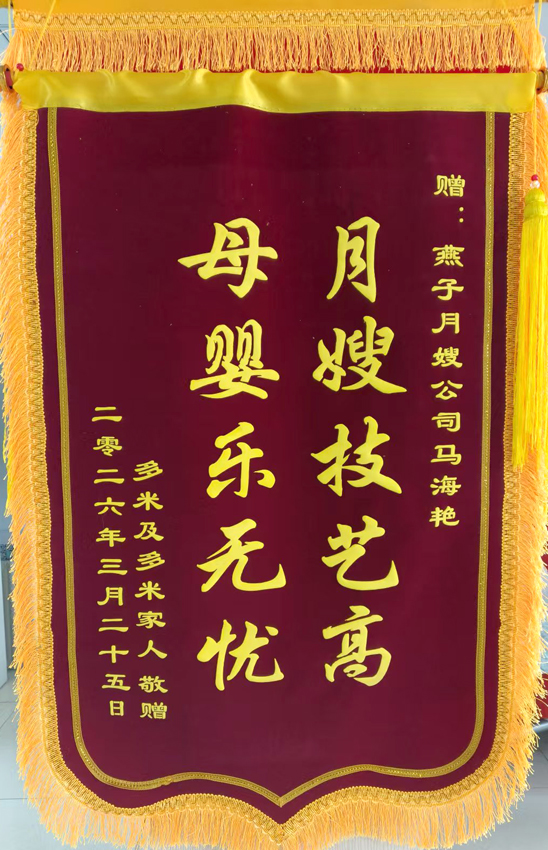 赠：燕子月嫂公司马海艳
月嫂技艺高
母婴乐无忧
多米及多米家人 敬赠
二零二六年三月二十五日